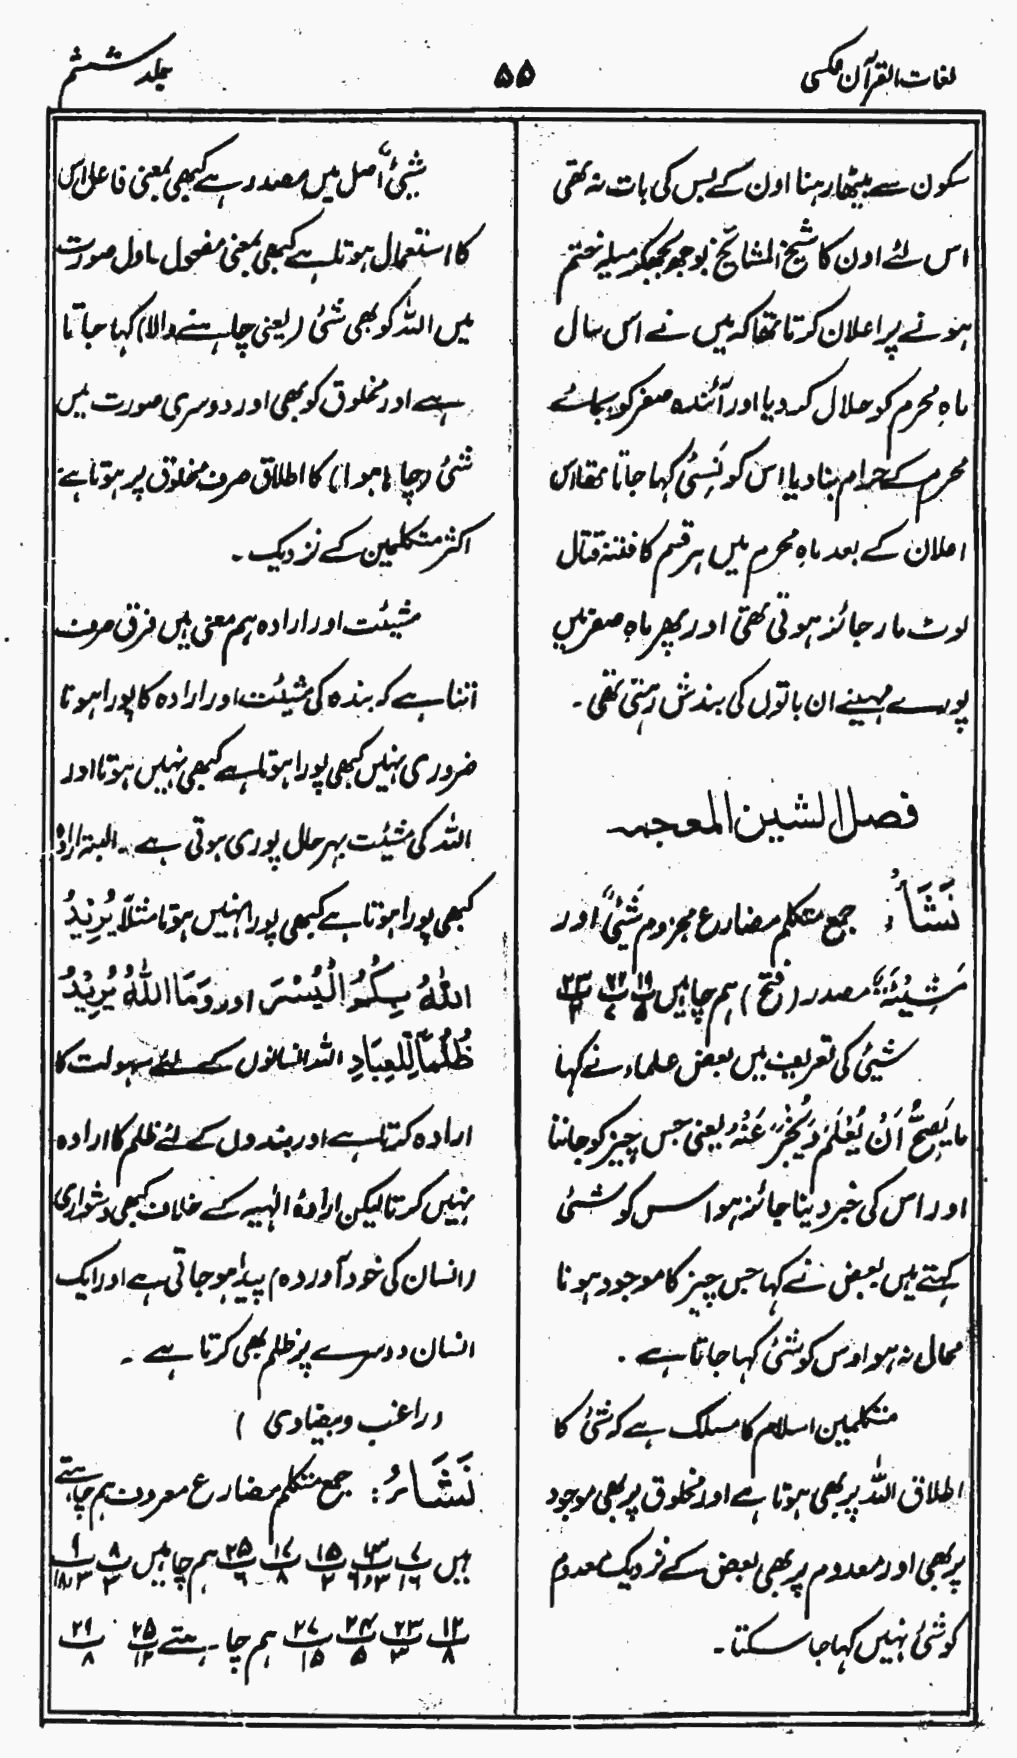 لغات القرآن عکسی
۵۵
جلد ششم
سکون سے بیٹھا رہنا اون کے بس کی بات نہ تھی
اس لئے اون کا شیخ المشائخ بوجھ بجھکر میلہ ختم
ہونے پر اعلان کرتا تھا کہ میں نے اس سال
ماہِ محرم کو حلال کر دیا اور آئندہ صفر کو بجائے
محرم کے حرام بنا دیا اس کو نَسِئی کہا جاتا تھا اس
اعلان کے بعد ماہِ محرم میں ہر قسم کا فتنہ قتال
لوٹ مار جائز ہوتی تھی اور پھر ماہِ صفر میں
پورے مہینے ان باتوں کی بندش رہتی تھی ۔
فصل الشین المعجمہ
نَشَأْ : جمع متکلم مضارع مجزوم شَیْئٌ اور
مَشِیْئَۃٌ مصدر (فتح) ہم چاہیں
شیئی کی تعریف میں بعض علماء نے کہا
مَا یَصِحُّ اَنْ یُعْلَمَ وَیُخْبَرَ عَنْہُ یعنی جس چیز کو جاننا
اور اس کی خبر دینا جائز ہو اس کو شئی
کہتے ہیں بعض نے کہا جس چیز کا موجود ہونا
محال نہ ہو اوس کو شئی کہا جاتا ہے ۔
متکلمین اسلام کا مسلک ہے کہ شئی کا
اطلاق اللہ پر بھی ہوتا ہے اور مخلوق پر بھی موجود
پر بھی اور معدوم پر بھی بعض کے نزدیک معدوم
کو شئی نہیں کہا جا سکتا ۔
شَیْئٌ اصل میں مصدر ہے کبھی بمعنی فاعل اس
کا استعمال ہوتا ہے کبھی بمعنی مفعول ۔ اول صورت
میں اللہ کو بھی شئی (یعنی چاہنے والا) کہا جاتا
ہے اور مخلوق کو بھی اور دوسری صورت میں
شئی (چاہا ہوا) کا اطلاق صرف مخلوق پر ہوتا ہے
اکثر متکلمین کے نزدیک ۔
مشیئت اور ارادہ ہم معنی ہیں فرق صرف
اتنا ہے کہ بندہ کی مشیئت اور ارادہ کا پورا ہونا
ضروری نہیں کبھی پورا ہوتا ہے کبھی نہیں ہوتا اور
اللہ کی مشیئت بہرحال پوری ہوتی ہے ۔ البتہ ارادہ
کبھی پورا ہوتا ہے کبھی پورا نہیں ہوتا مثلاً یُرِیْدُ
اللّٰہُ بِکُمُ الْیُسْرَ اور وَمَا اللّٰہُ یُرِیْدُ
ظُلْمًا لِّلْعِبَادِ اللہ انسانوں کے لئے سہولت کا
ارادہ کرتا ہے اور بندوں کے لئے ظلم کا ارادہ
نہیں کرتا لیکن ارادۂ الٰہیہ کے خلاف کبھی دشواری
(انسان کی خود آوردہ) پیدا ہو جاتی ہے اور ایک
انسان دوسرے پر ظلم بھی کرتا ہے ۔
(راغب و بیضاوی)
نَشَاءُ : جمع متکلم مضارع معروف ہم چاہتے
ہیں پ۷/۱۶ پ۱۳/۳و۶ پ۱۵/۲ پ۱۷/۸ پ۲۵/۶ ہم چاہیں پ۸/۲ پ۹/۳و۱۸
پ۱۲/۸ پ۲۳/۳ پ۲۴/۵ پ۲۷/۱۵ ہم چاہتے پ۲۵/۱۲ پ۲۱/۸